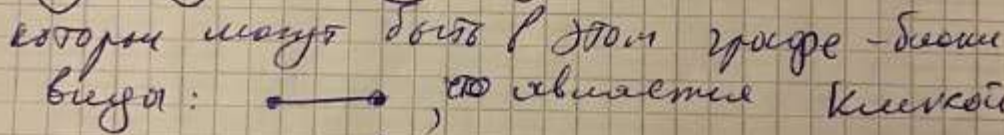 которые могут быть в этом графе - блоки
вида: , что является кликой